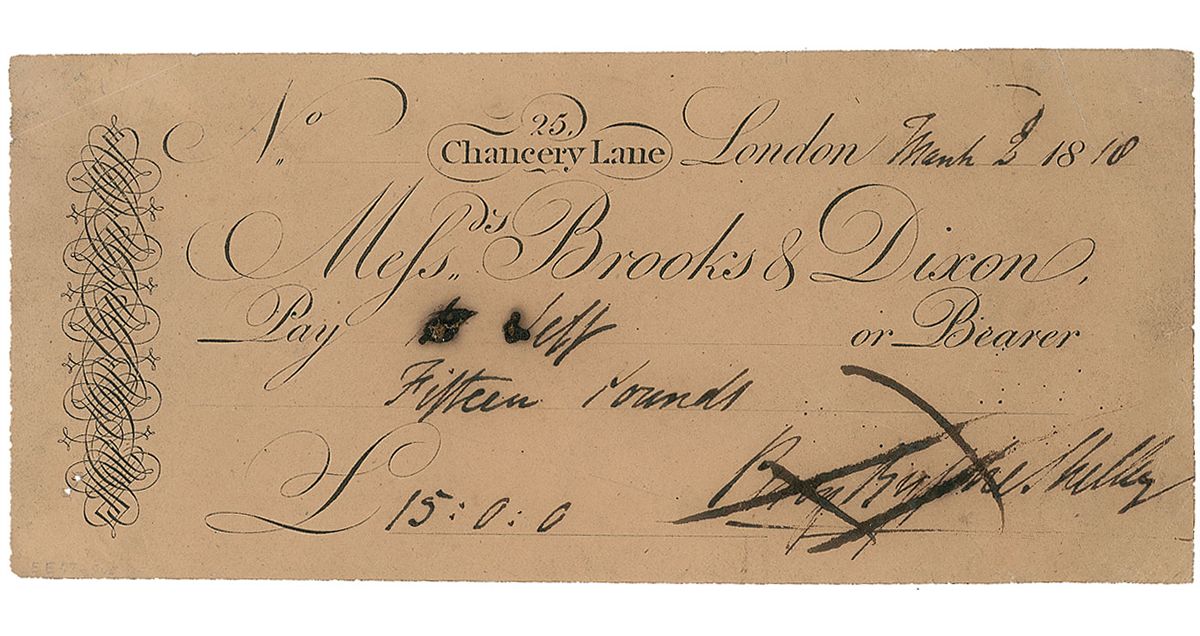 No. 25, Chancery Lane London March 2 1818
Messrs. Brooks & Dixon,
Pay to Self or Bearer
Fifteen Pounds
£ 15:0:0 Percy Bysshe Shelley